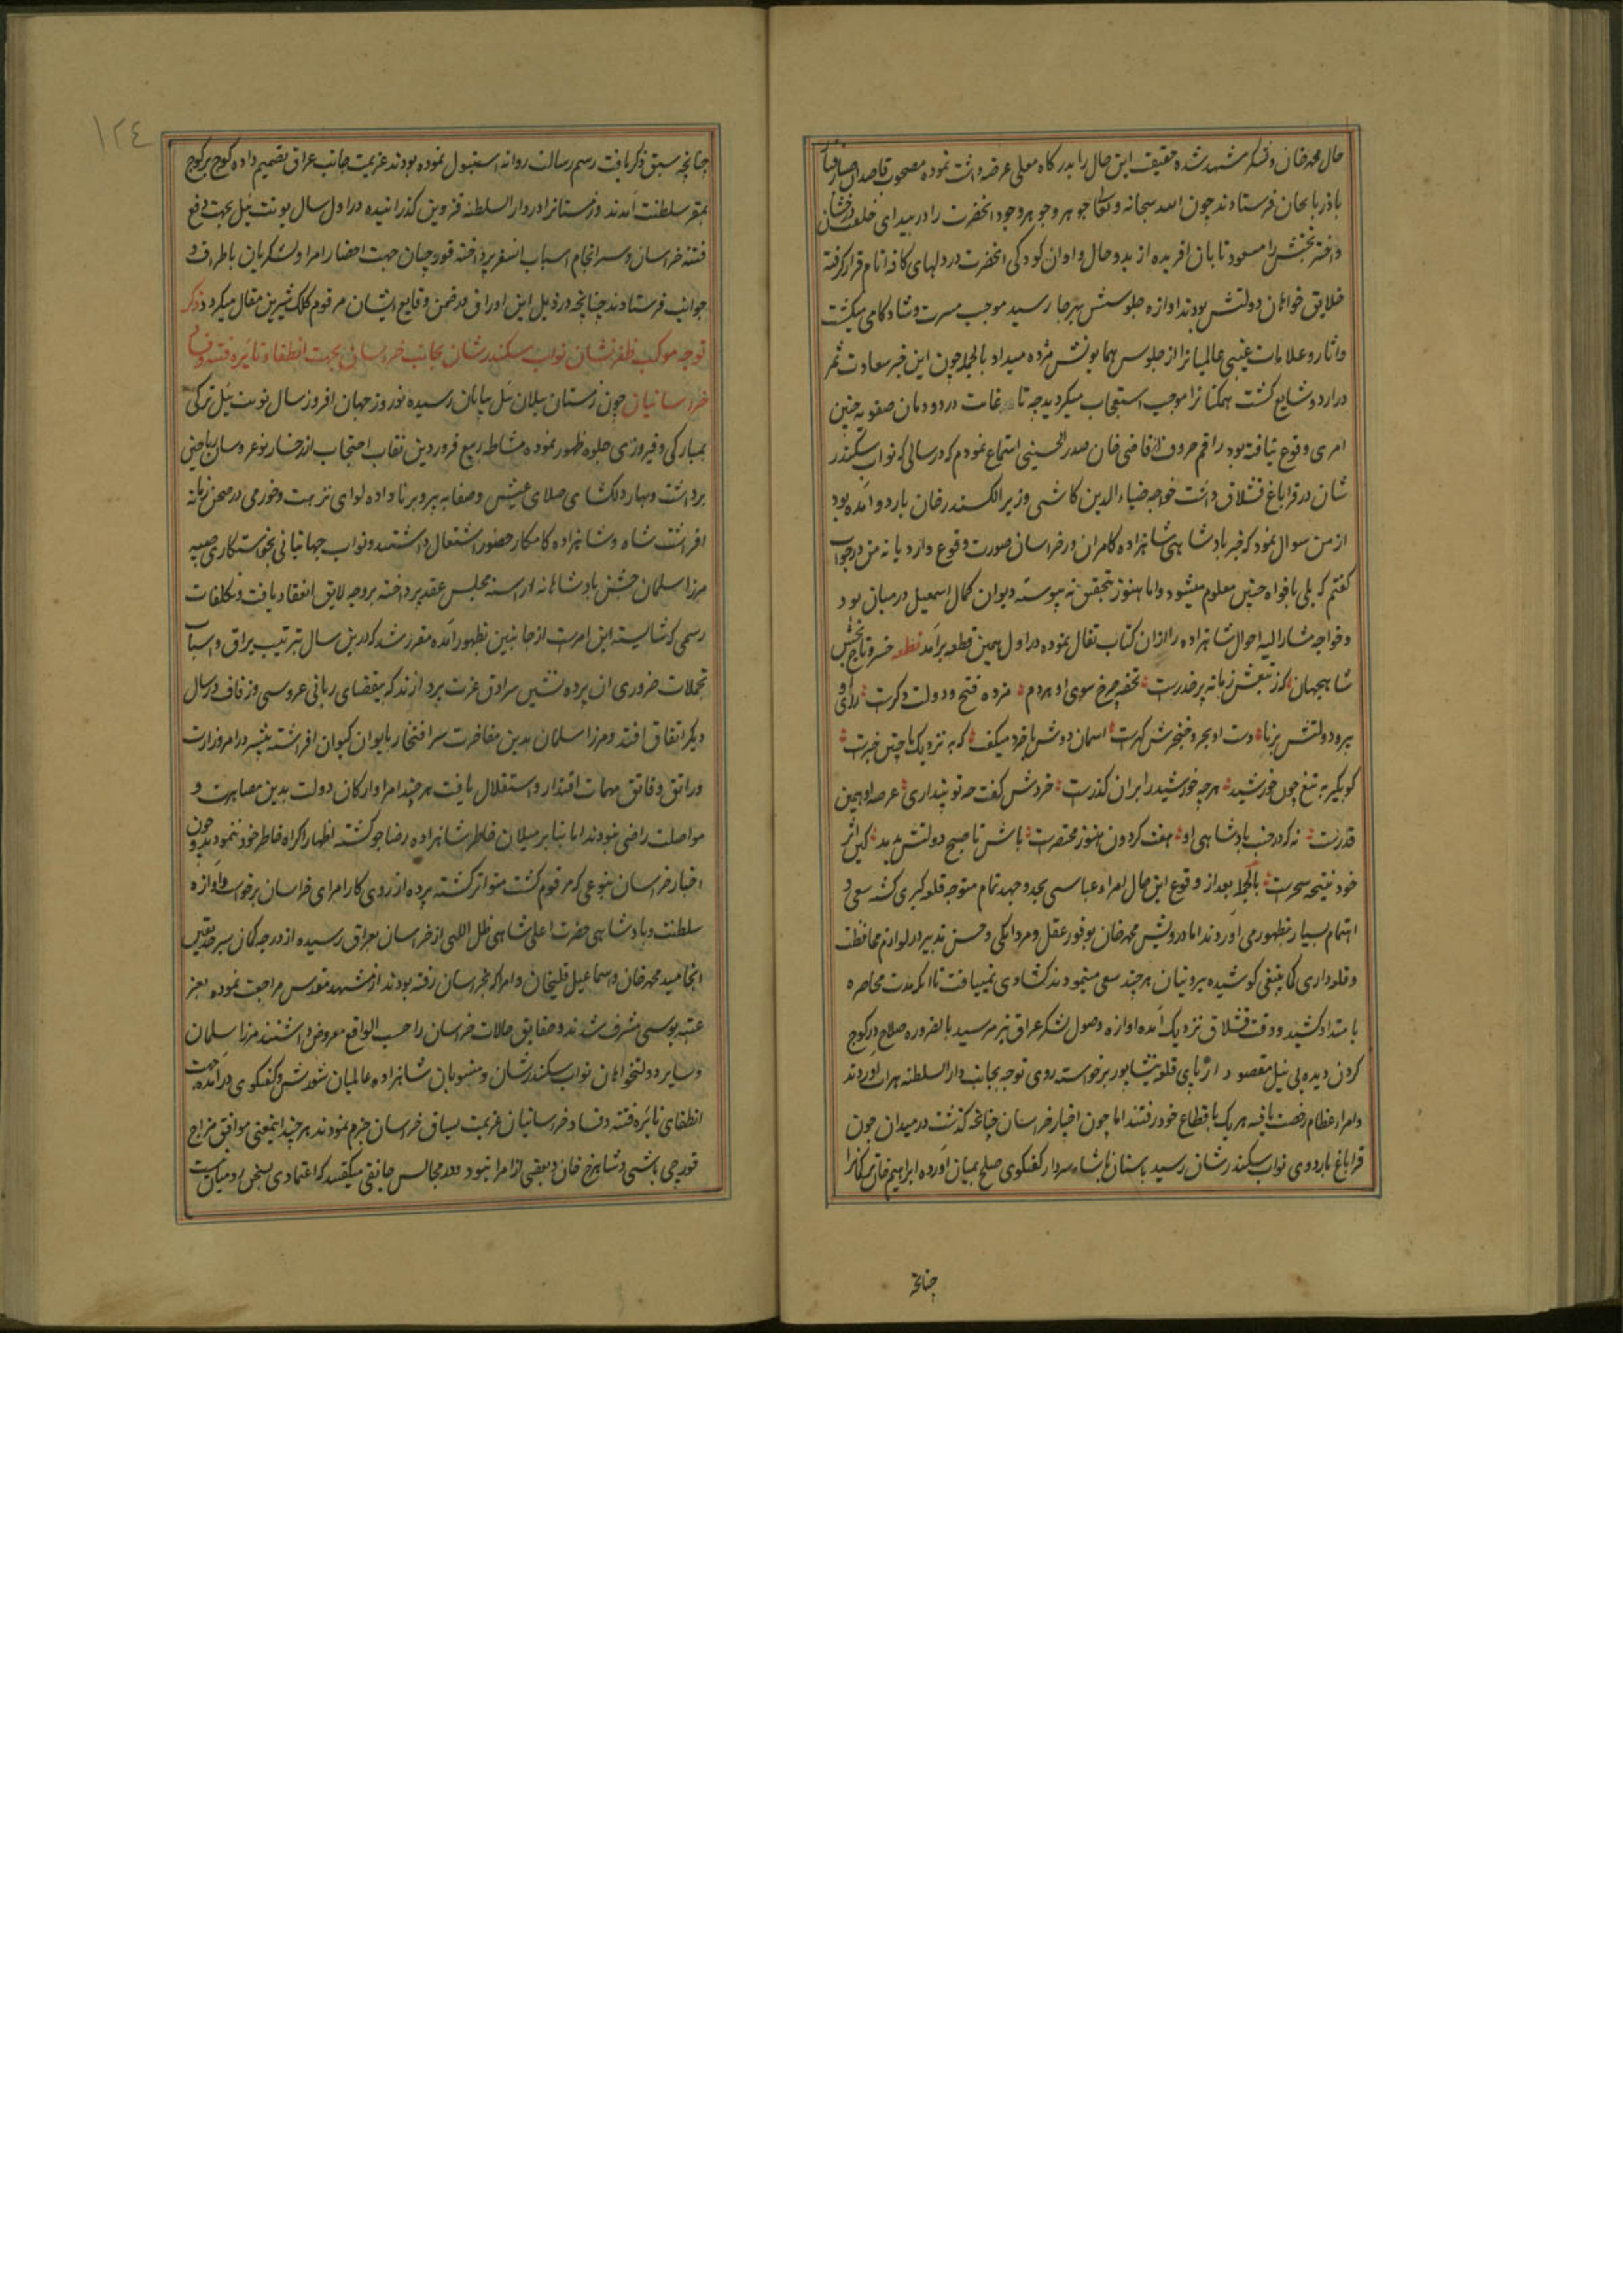 حال محمد خان و لشکر مشهد شده حقیقت این حال را بدرگاه معلی عرضه داشت نموده مصحوب قاصدان صبا رفتار
باذربایجان فرستادند چون الله سبحانه و تعالی جوهر وجود انحضرت را در بیدای خلقت درخشان
و اختر بختش را مسعود و تابان افریده از بدو حال و اوان کودکی انحضرت در دلهای کافه انام قرار گرفته
خلایق خواهان دولتش بودند اوازه جلوسش بهر جا رسید موجب مسرت و شادکامی میکشت
و اثار و علامات غیبی عالمیانرا از جلوس همایونش مژده میداد بالجمله چون این خبر سعادت ثمر
در اردو شایع کشت همکنانرا موجب استعجاب میکردید چه تا غایت در دودمان صفویه چنین
امری وقوع نیافته بود راقم حروف از قاضی خان صدر الحسینی استماع نمودم که در سالی که نواب سکندر
شان در قراباغ قشلاق داشت خواجه ضیاء الدین کاشی وزیر الکسندر خان باردو امده بود
از من سوال نمود که خبر بادشاهی شاهزاده کامران در خراسان صورت وقوع دارد یا نه من در جواب
کفتم که بلی بافواه چنین معلوم میشود و اما هنوز بتحقیق نه پیوسته دیوان کمال اسمعیل در میان بود
و خواجه مشار الیه احوال شاهزاده را از ان کتاب تفال نموده در اول همین قطعه برامد قطعه خسرو تاج بخش
شاه جهان که ز تیغش زمانه پر خدرست تحفه چرخ سوی او هر دم مژده فتح و دولت دکرست رای او
پیر و دولتش برنا دست او بحر و خنجرش کهرست اسمان دوش با خرد میکفت که به نزدیک ما چنین خبرست
کو بکیرد به تیغ چون خورشید هر چه خورشید را بر ان کذرست خردش کفت چه تو پنداری عرصه او همین
قدرست نه که در جنب بادشاهی او هفت کردون هنوز مختصرست باش تا صبح دولتش بدمد کین اثر
خود نتیجه سحرست بالجمله بعد از وقوع این حال امراء عباسی بجد و جهد تمام متوجه قلعه کیری کشته سعی و
اهتمام بسیار بظهور می اوردند اما درویش محمد خان بوفور عقل و مردانکی و حسن تدبیر در لوازم محافظت
و قلعه داری کما ینبغی کوشیده بیرونیان هر چند سعی مینمودند کشادی نمییافت تا انکه مدت محاصره
بامتداد کشید و وقت قشلاق نزدیک امده اوازه وصول لشکر عراق نیز میرسید بالضروره صلاح در کوچ
کردن دیده بی نیل مقصود از پای قلعه نیشابور برخواسته روی توجه بجانب دار السلطنه هرات اوردند
و امراء عظام رخصت یافته هر یک باقطاع خود رفتند اما چون اخبار خراسان چنانچه کذشت در میدان جون
قراباغ باردوی نواب سکندر شان رسید باستان پاشاه سردار کفتکوی صلح بمیان اورده ابراهیم خان ترکمانرا
چنانچه
۱۲۴
چنانچه سبق ذکر یافت رسم رسالت روانه استنبول نموده بودند عزیمت جانب عراق تصمیم داده کوچ بر کوچ
بمقر سلطنت امدند و زمستانرا در دار السلطنه قزوین کذرانیده در اول سال یونت ئیل بجهت دفع
فتنه خراسان و سرانجام اسباب انسفر پرداخته قورچیان جهت احضار امرا و لشکریان باطراف و
جوانب فرستادند چنانچه در ذیل این اوراق در ضمن وقایع ایشان مرقوم کلک شیرین مقال میکردد ذکر
توجه موکب ظفر نشان نواب سکندر شان بجانب خراسان بجهت انطفاء نائره فتنه و فساد
خراسانیان چون زمستان ییلان ئیل بپایان رسیده نوروز جهان افروز سال نوینت ئیل ترکی
بمبارکی و فیروزی جلوه ظهور نموده مشاطه ربیع فروردین نقاب احتجاب از رخسار نوعروسان ریاحین
برداشت و بهار دلکشای صلای عیش و صفا به پیر و برنا داده لوای نزهت و خورمی در صحن زمانه
افراشت شاه و شاهزاده کامکار حضور اشتغال داشتند و نواب جهانبانی بخواستکاری صبیه
میرزا سلمان جشن بادشاهانه اراسته مجلس عقد پرداخته بر وجه لایق انعقاد یافت و تکلفات
رسمی که شایسته این امرست از جانبین بظهور امده مقرر شد که درین سال بترتیب یراق و اسباب
تجملات ضروری ان پرده نشین سرادق عزت پردازند که بمقتضای ربانی عروسی و زفاف در سال
دیکر اتفاق افتد و میرزا سلمان بدین مفاخرت سر افتخار بایوان کیوان افراشته بیشتر در امر وزارت
و راتق و فاتق مهمات اقتدار و استقلال یافت هر چند امرا و ارکان دولت بدین مصاهرت و
مواصلت راضی نبودند اما بنابر میلان خاطر شاهزاده رضا جو کشته اظهار اکراه خاطر خود ننمودند و چون
اخبار خراسان بنوعی که مرقوم کشت متواتر کشته پرده از روی کار امرای خراسان برخواست و اوازه
سلطنت و بادشاهی حضرت اعلی شاهی ظل اللهی از خراسان بعراق رسیده از درجه کمان بسرحد یقین
انجامید محمد خان و اسماعیل قلیخان و امرا که بخراسان رفته بودند از مشهد مقدس مراجعت نموده بعز
عتبه بوسی مشرف شدند و حقایق حالات خراسان را حسب الواقع معروض داشتند میرزا سلمان
و سایر دولتخواهان نواب سکندر شان و منسوبان شاهزاده عالمیان شورش و کفتکوی درامده جهت
انطفای نائره فتنه و فساد خراسانیان عزیمت یساق خراسان جزم نمودند هر چند اینمعنی موافق مزاج
قورچی باشی و شاهرخ خان و بعضی از امرا نبود و در مجالس جانقی میکفتند که اعتمادی بسخن رومیان نیست